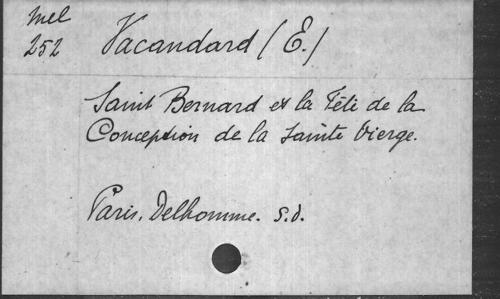 Mel
252
Vacandard (E.)
Saint Bernard et la Fête de la
Conception de la Sainte Vierge.
Paris, Delhomme. s.d.